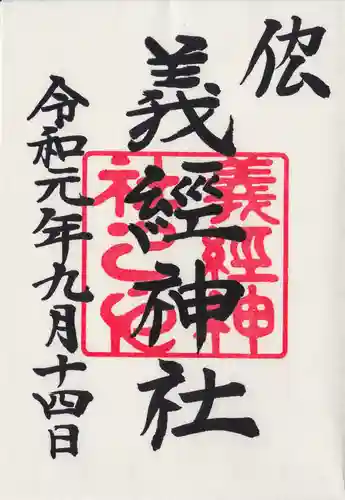 義經神社
令和元年九月十四日
義經神
社之印